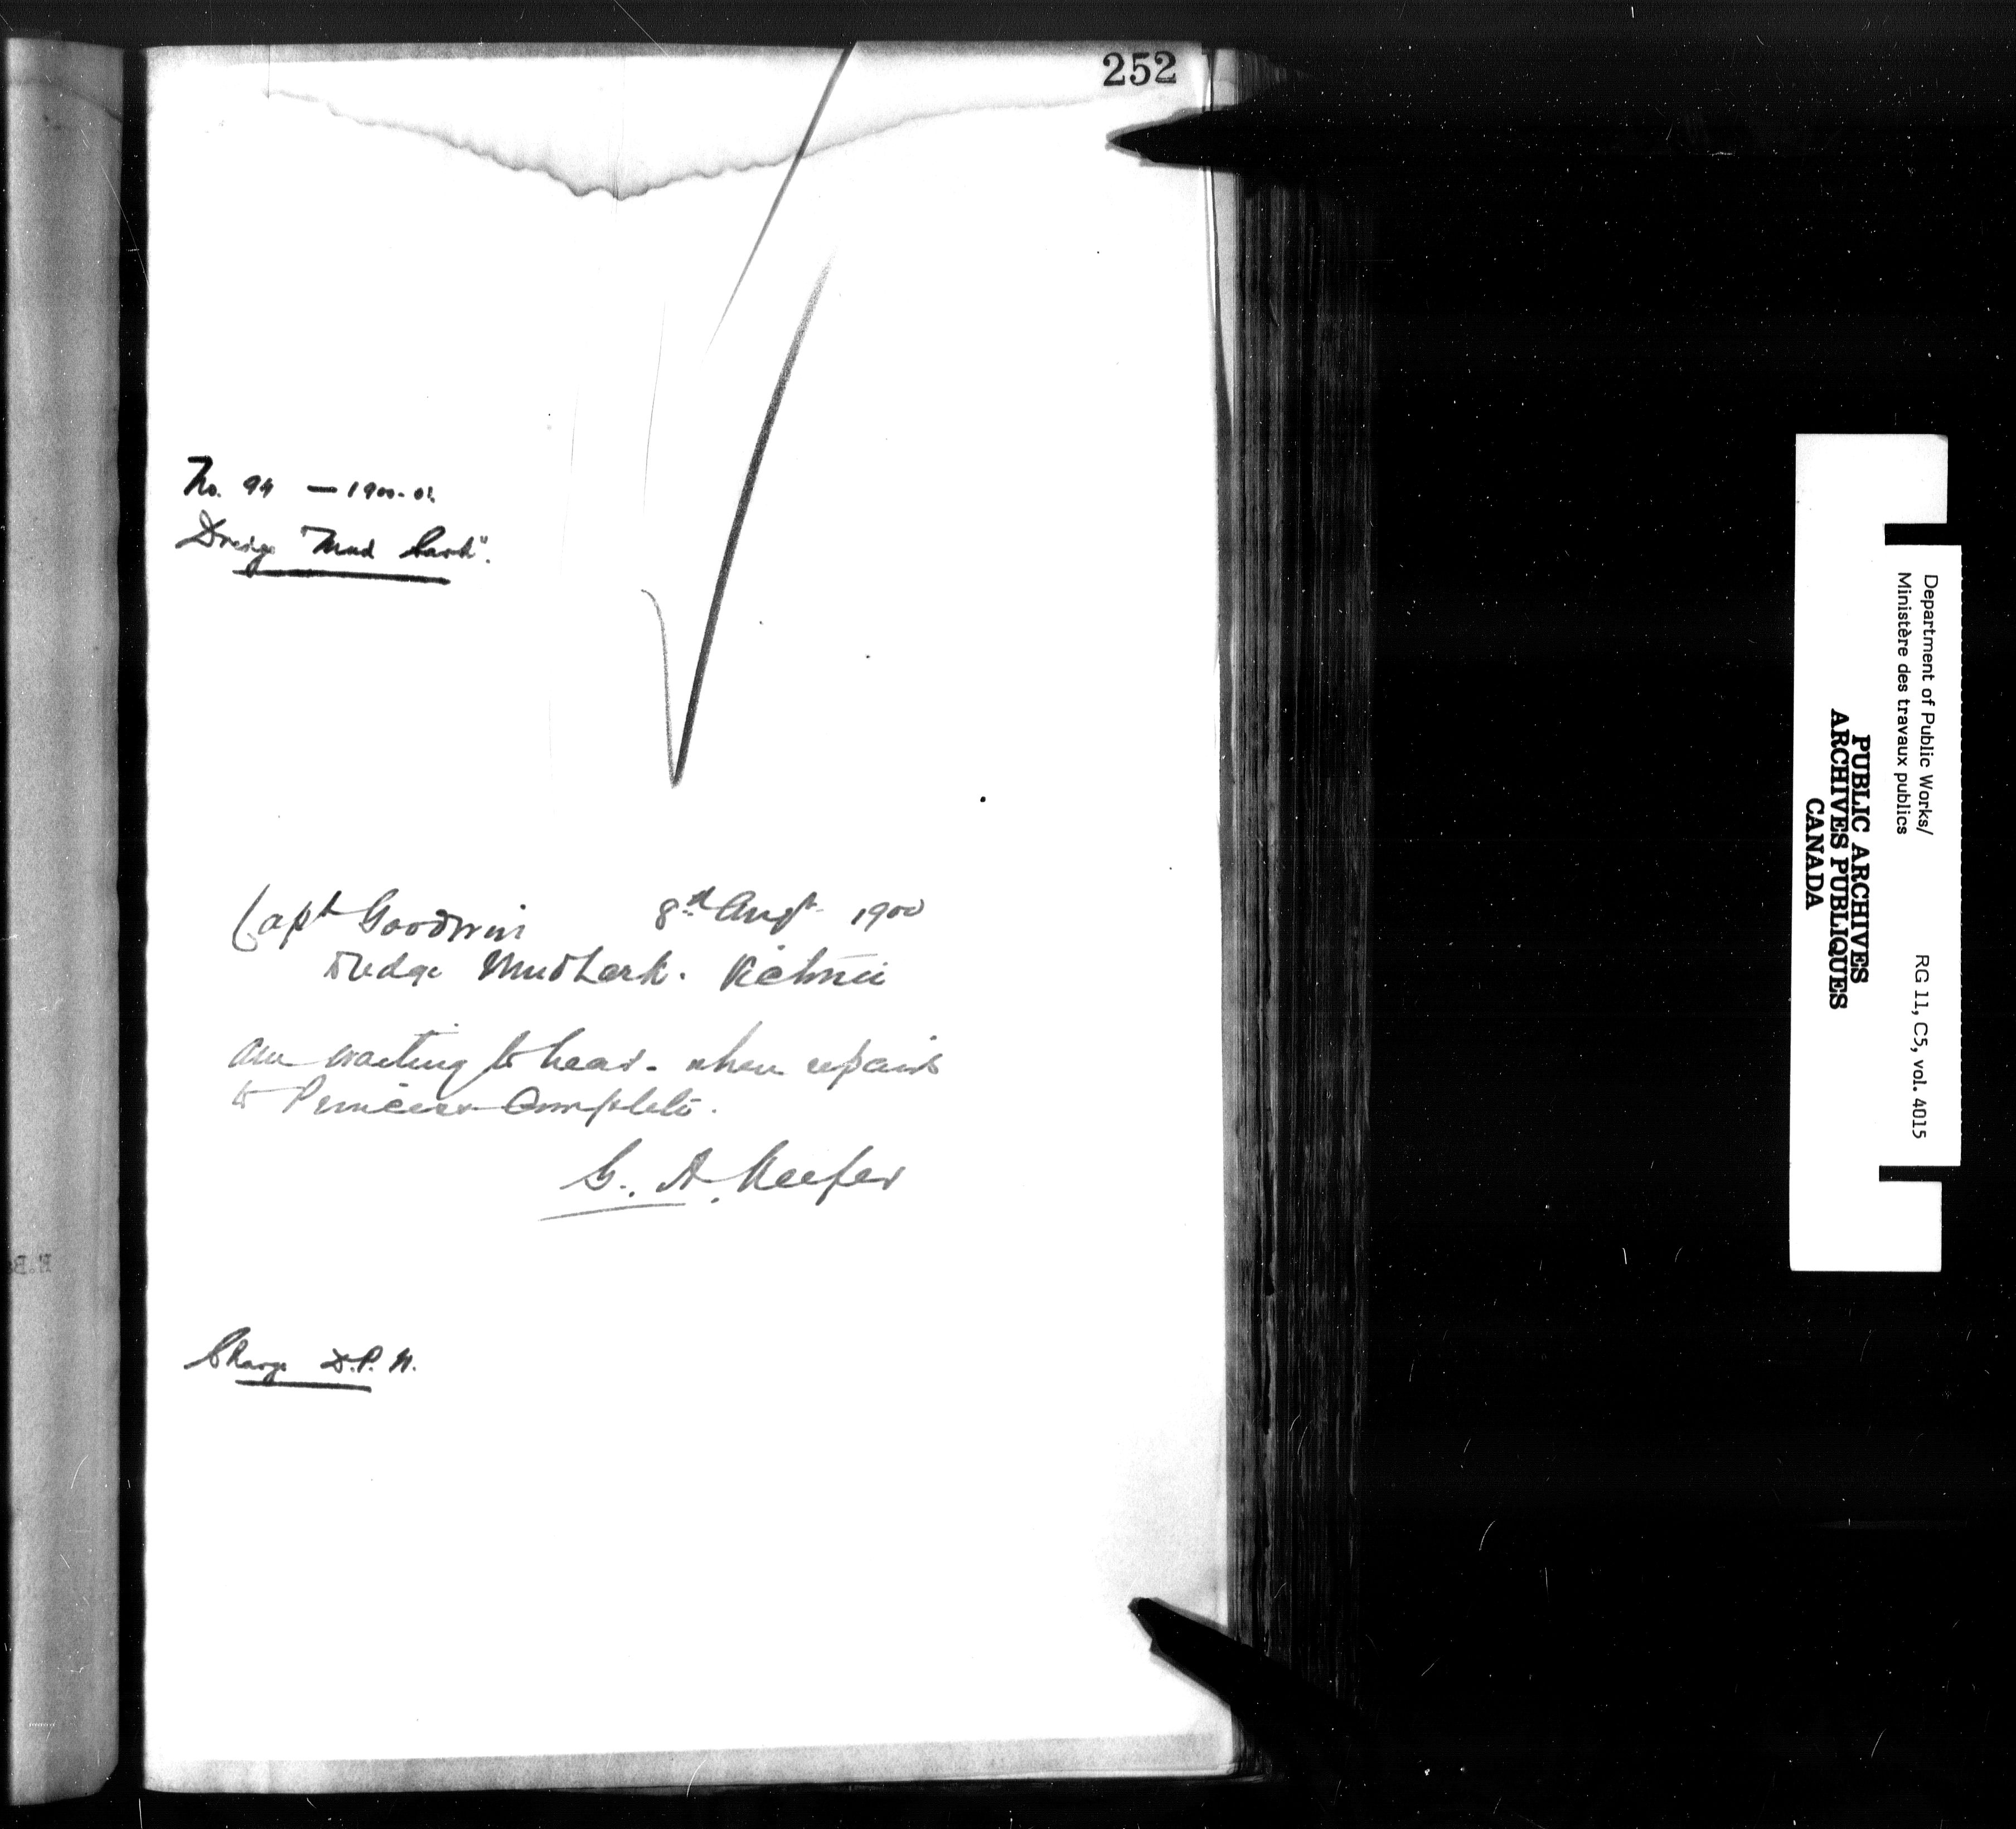 252
No. 94 — 1900-01.
Dredge "Mud Lark".
Capt Goodwin 8th Augt 1900
Dredge Mud Lark. Victoria
Am waiting to hear. when repairs
to Princess Complete.
G. A. Keefer
Charge D.P.W.
Department of Public Works/
Ministère des travaux publics
RG 11, C5, vol. 4015
PUBLIC ARCHIVES
ARCHIVES PUBLIQUES
CANADA